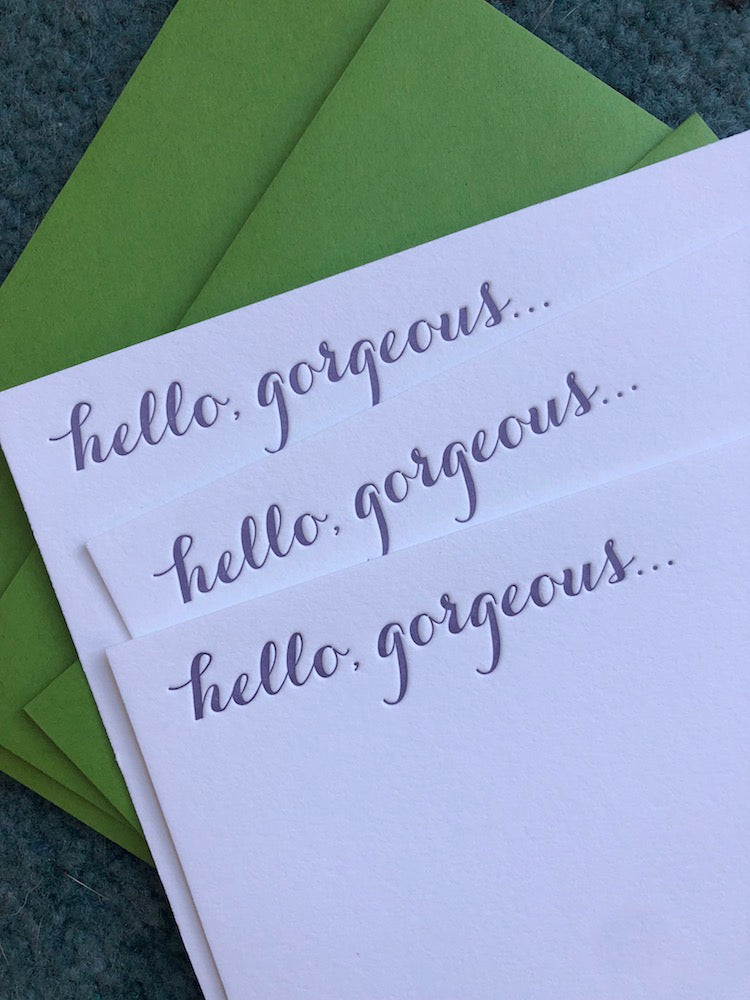 hello, gorgeous...
hello, gorgeous...
hello, gorgeous...